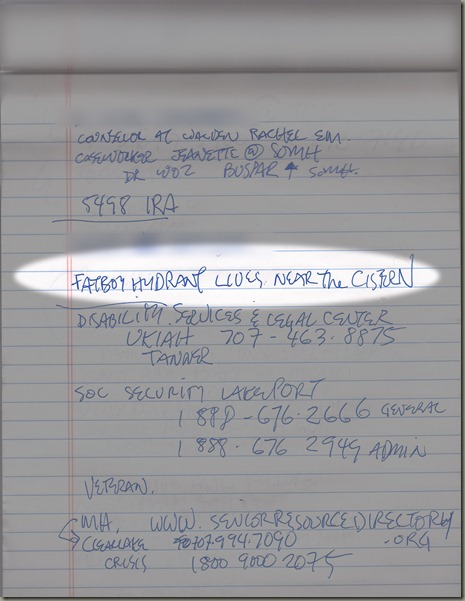 COUNSELOR AT WALDEN RACHEL EIM.
CASEWORKER JEANETTE @ SOMH
DR WOZ BUSPAR ↑ SOMH.
5498 IRA
FATBOY HYDRANT LIVES NEAR the CISTERN
DISABILITY SERVICES & LEGAL CENTER
UKIAH 707-463.8875
TANNER
SOC SECURITY LAKEPORT
1 888-676.2666 GENERAL
1 888. 676 2949 ADMIN
VETERAN.
MH, WWW.SENIORRESOURCEDIRECTORY
CLEARLAKE 707.994.7090 .ORG
CRISIS 1800 9000 2075